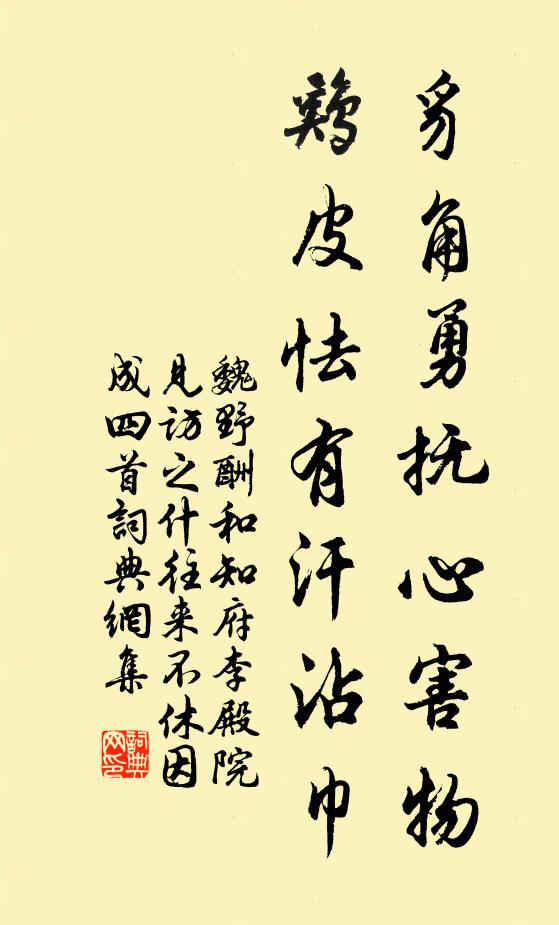 豸角勇抚心害物
鷄皮怯有汗沾巾
魏野酬和知府李殿院
見訪之什往来不休因
成四首詞典網集
詞典
网印